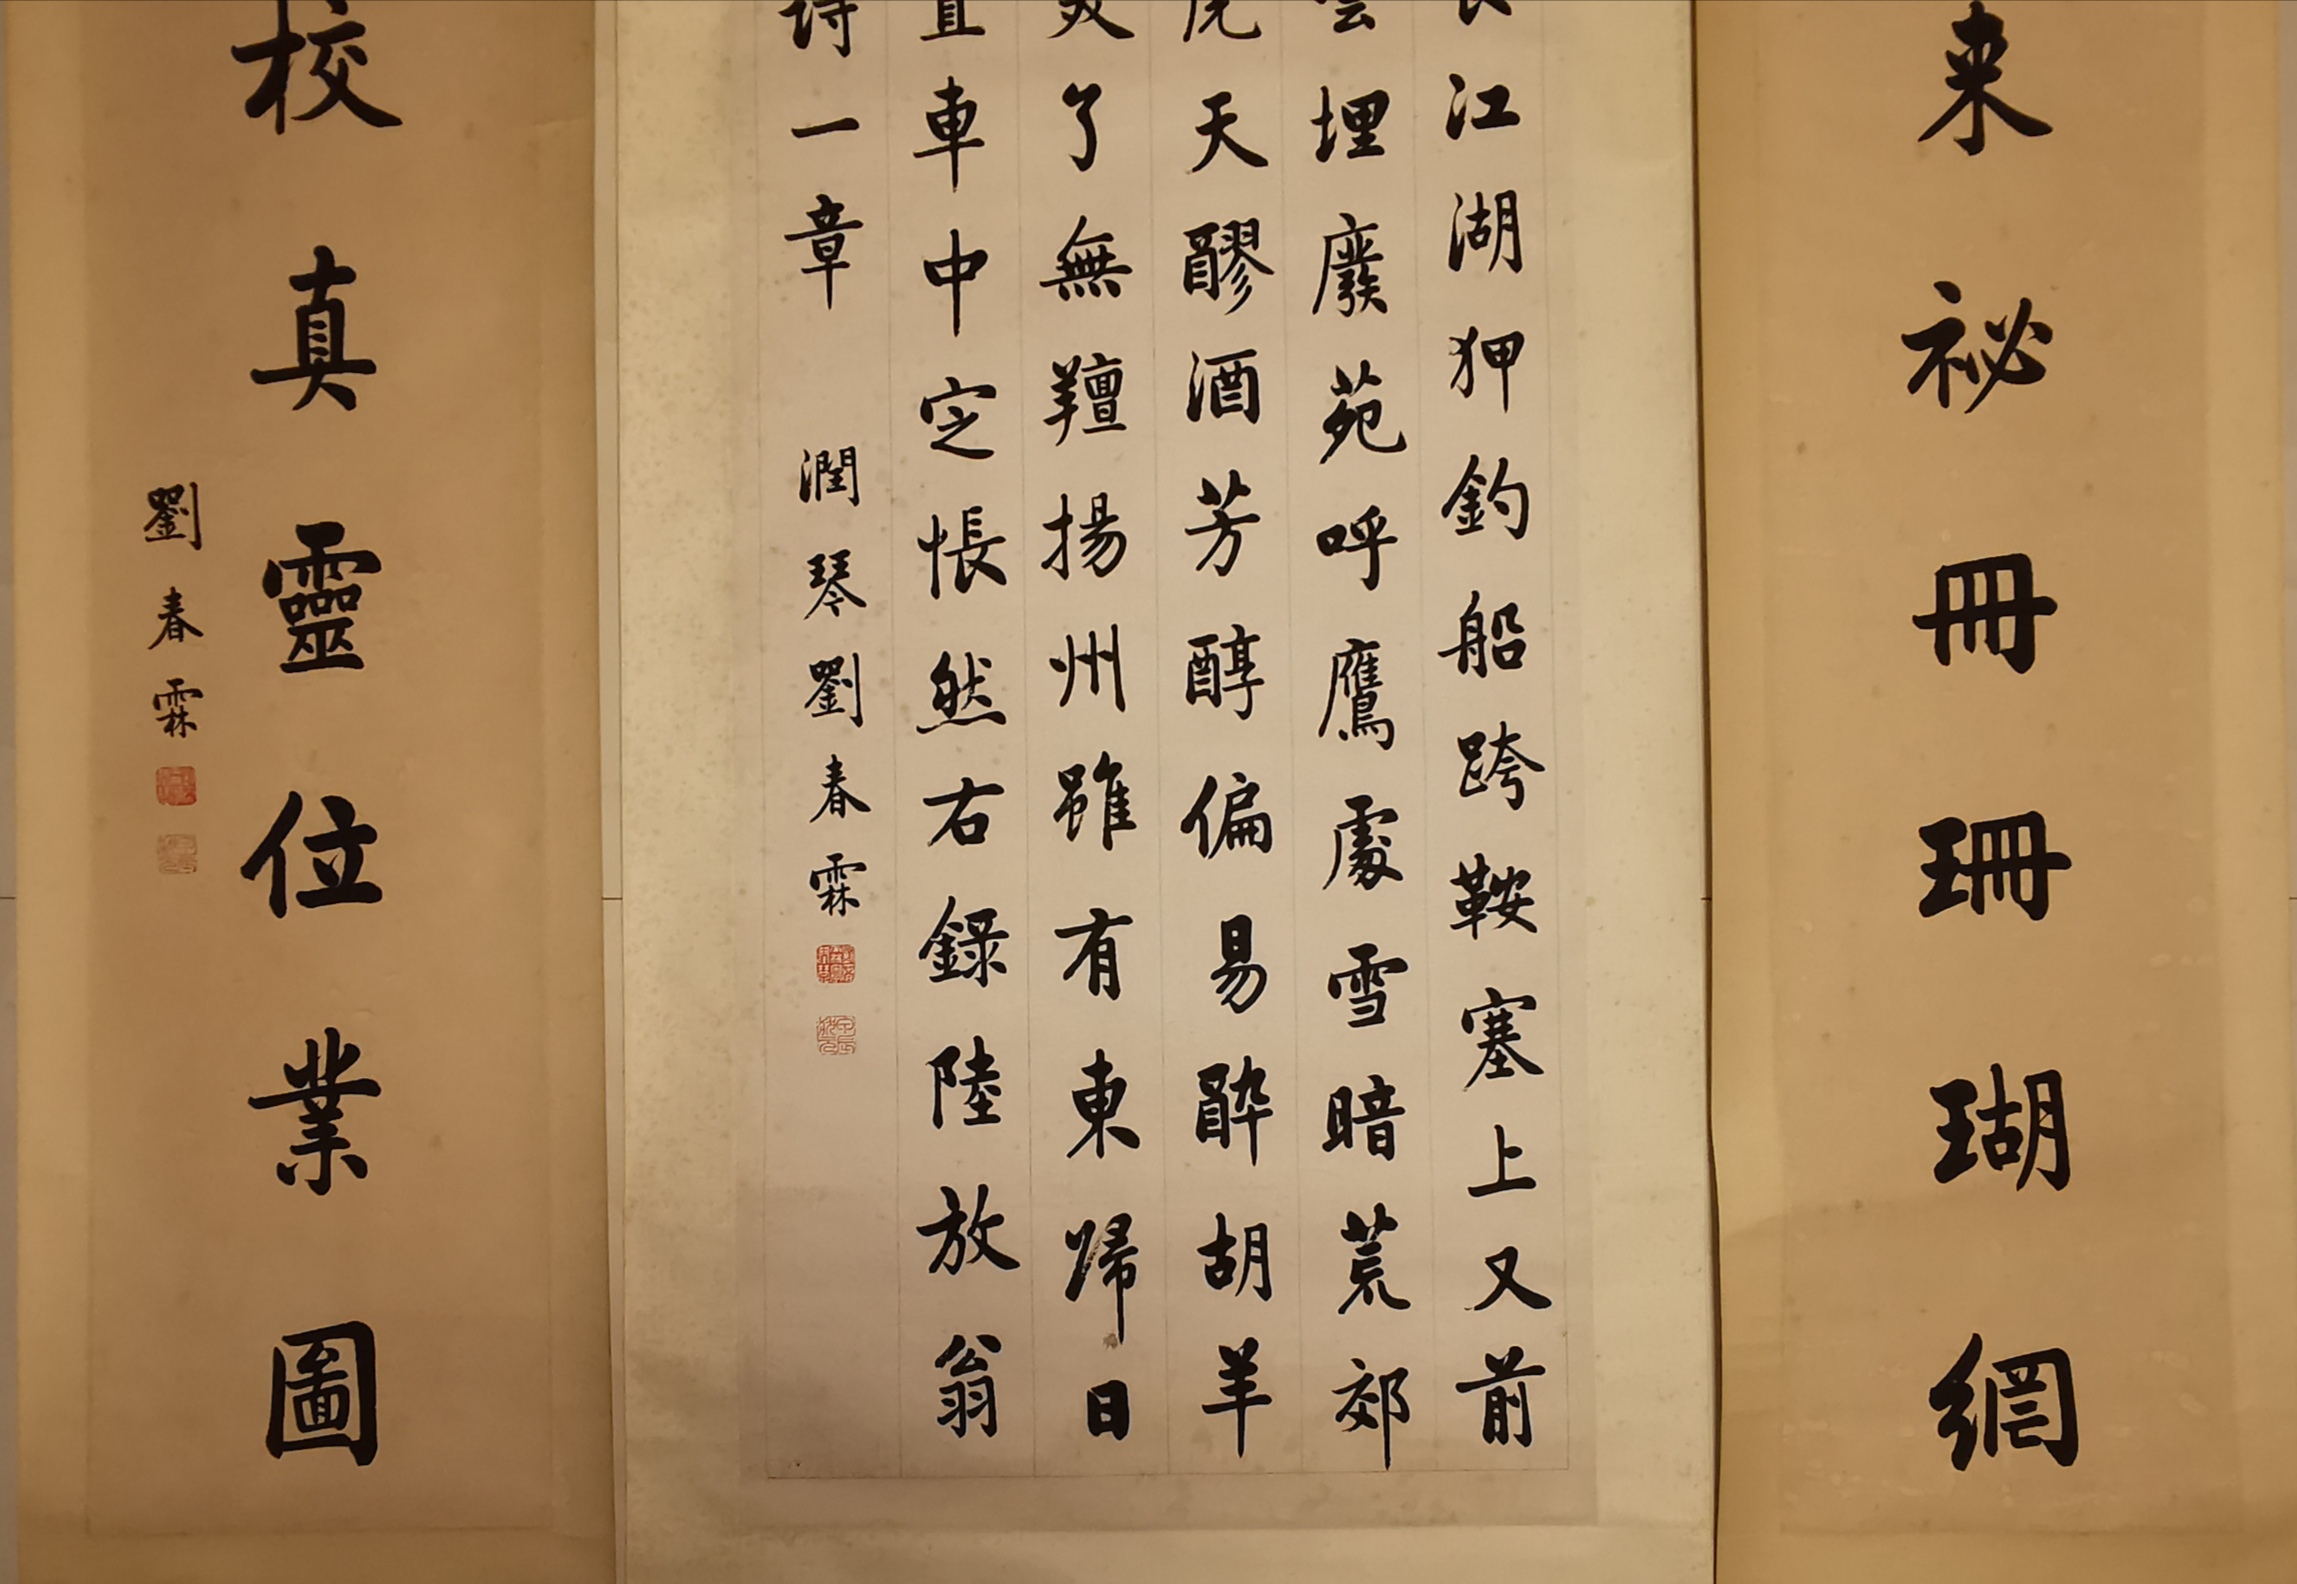 来祕冊珊瑚網
江湖狎釣船跨鞍塞上又前
雲埋廢苑呼鷹處雪暗荒郊
虎天醪酒芳醇偏易醉胡羊
美了無羶揚州雖有東歸日
置車中定悵然右錄陸放翁
詩一章 潤琴劉春霖
校真靈位業圖
劉春霖